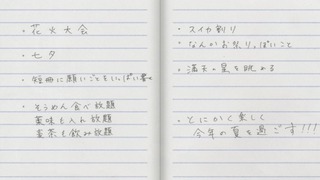 ・花火大会
・七夕
・短冊に願いごとをいっぱい書く
・そうめん食べ放題
薬味も入れ放題
麦茶も飲み放題
・スイカ割り
・なんかお祭りっぽいこと
・満天の星を眺める
・とにかく楽しく
今年の夏を過ごす!!!